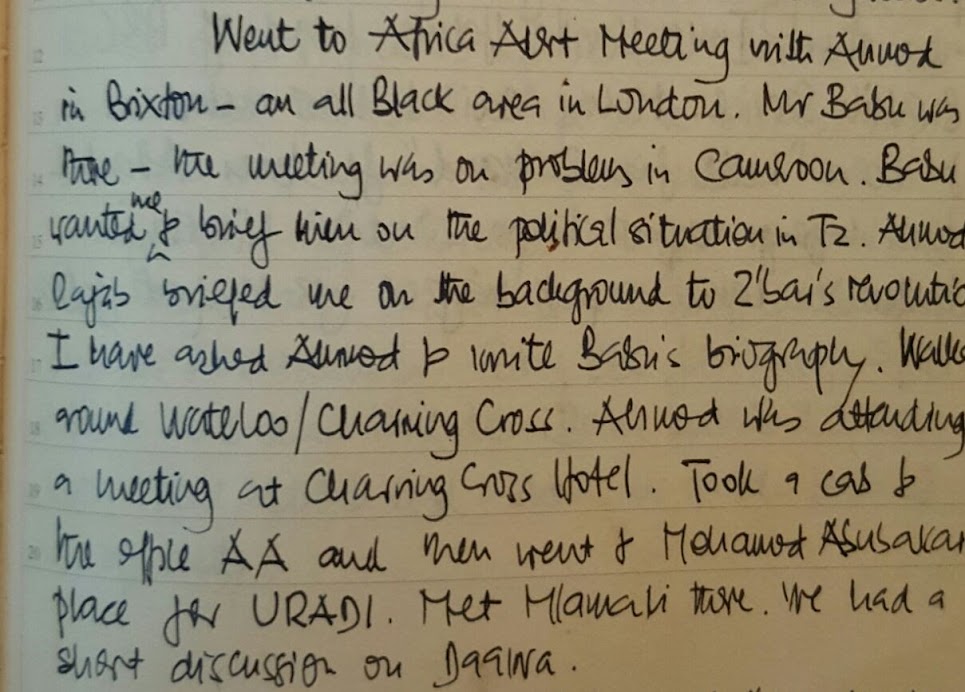 Went to Africa Alert Meeting with Ahmed
in Brixton - an all Black area in London. Mr Babu was
there - the meeting was on problems in Cameroon. Babu
wanted me to brief him on the political situation in TZ. Ahmed
Rajab briefed me on the background to Z'bar's revolutio
I have asked Ahmed to write Babu's biography. Walke
around Waterloo/Charring Cross. Ahmed was attending
a meeting at Charring Cross Hotel. Took a cab to
the office AA and then went to Mohamed Abubakar
place for URADI. Met Mlamali there. We had a
short discussion on Daawa.